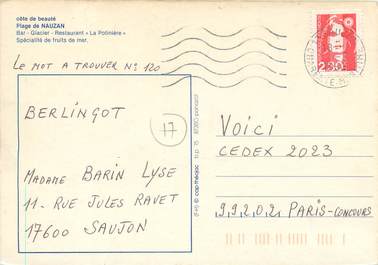 côte de beauté
Plage de NAUZAN
Bar - Glacier - Restaurant « La Polinière »
Spécialité de fruits de mer.
LE MOT A TROUVER N° 120
BERLINGOT
17
MADAME BARIN LYSE
11 - RUE JULES RAVET
17600 SAUJON
2,30
VOICI
CEDEX 2023
99202 PARIS-CONCOURS